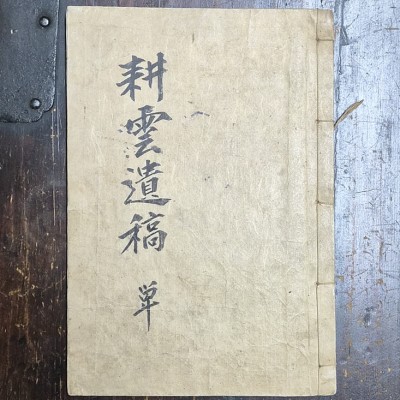 耕雲遺稿 单